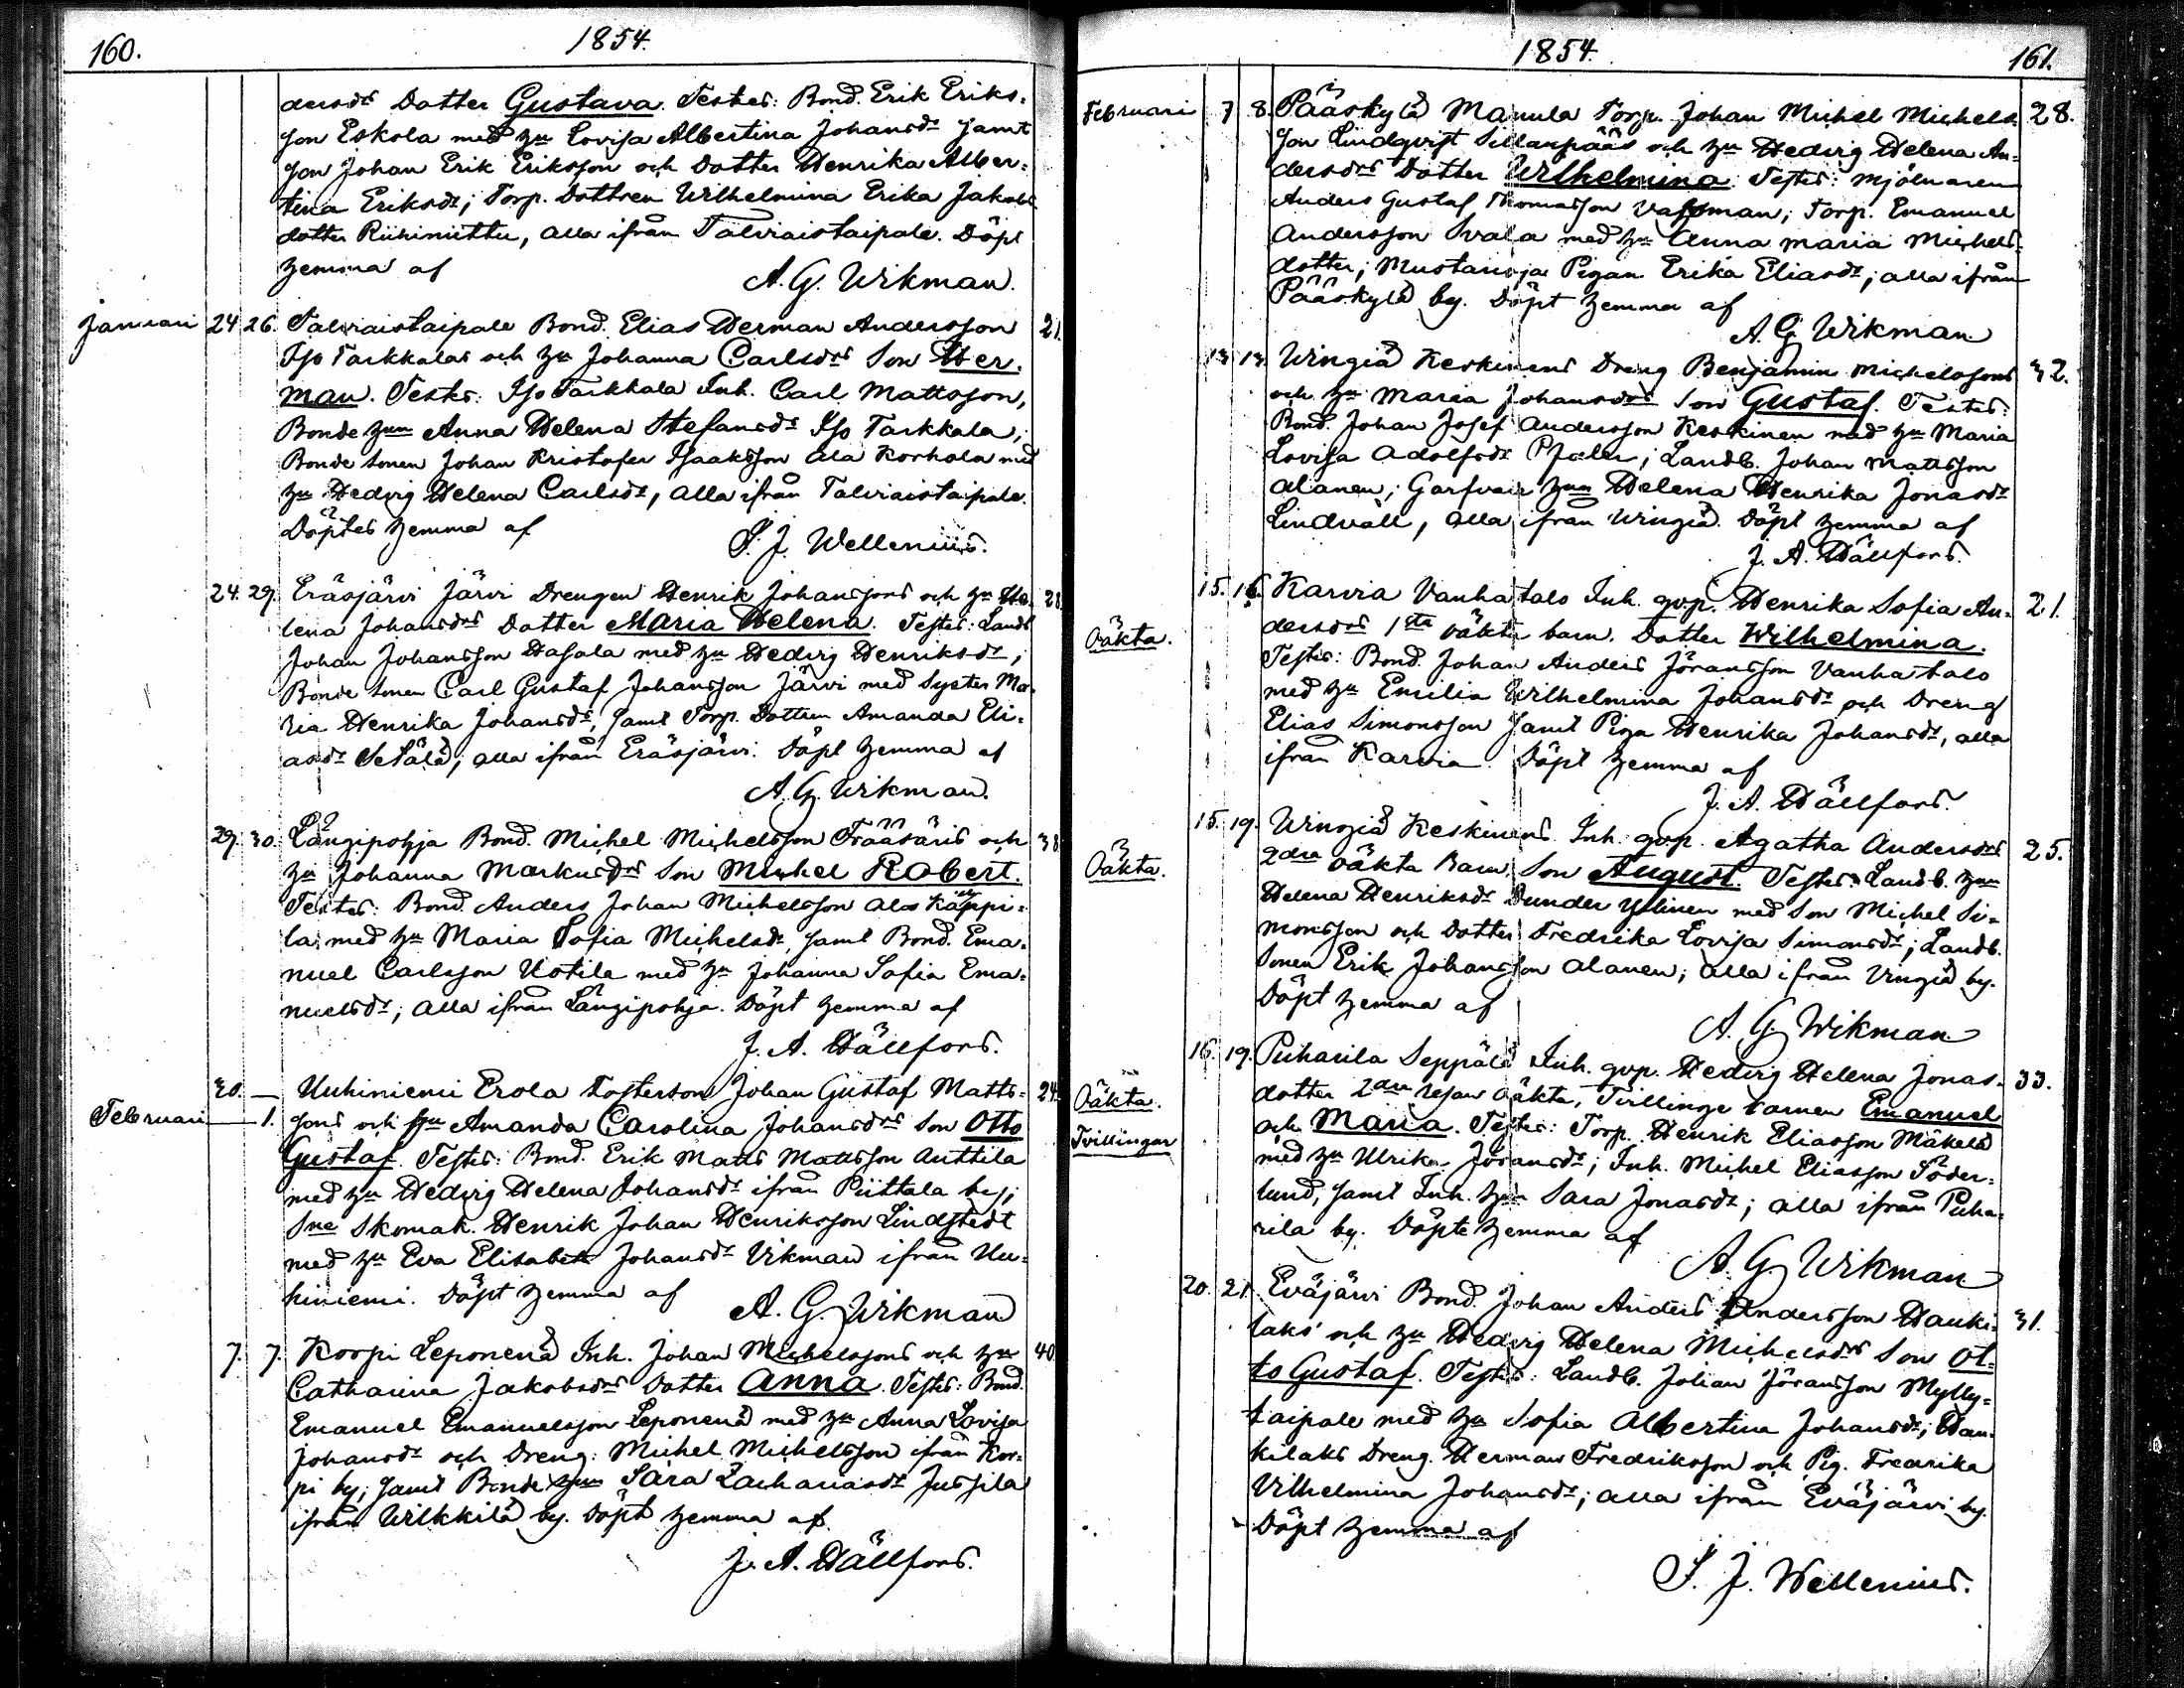 160.
1854.
dersdr Dotter Gustava. Testes: Bond. Erik Eriks-
son Eskola med hu Lovisa Albertina Johansdr samt
son Johan Erik Eriksson och dotter Henrika Alber-
tina Eriksdr; Torp. Dottren Wilhelmina Erika Jakobs
dotter Riihiniittu, alla ifrån Talviaistaipale. Döpt
hemma af
A. G. Wikman.
Januari 24 26. Talviaistaipale Bond. Elias Herman Andersson 21.
Iso Tarkkalas och hu Johanna Carlsdrs Son Her-
man. Testes: Iso Tarkkala Inh. Carl Mattsson,
Bonde hun Anna Helena Stefansdr Iso Tarkkala;
Bonde sonen Johan Kristofer Isaaksson Ala Korhola med
hu Hedvig Helena Carlsdr, alla ifrån Talviaistaipale.
Döptes hemma af
S. J. Wellenius.
24. 29. Eräsjärvi Järvi Drengen Henrik Johanssons och hu He- 28
lena Johansdrs Dotter Maria Helena. Testes: Landb
Johan Johansson Hasala med hu Hedvig Henriksdr,
Bonde sonen Carl Gustaf Johansson Järvi med Syster Ma-
ria Henrika Johansdr, samt Torp. Dottren Amanda Eli-
asdr Setälä; alla ifrån Eräsjärvi. Döpt hemma af
A. G. Wikman.
29. 30. Längipohja Bond. Michel Michelsson Frääsäris och 38
hu Johanna Markusdrs Son Michel Robert.
Testes: Bond. Anders Johan Michelsson Ala Käppi-
la med hu Maria Sofia Michelsdr, samt Bond. Ema-
nuel Carlsson Uotila med hu Johanna Sofia Ema-
nuelsdr; alla ifrån Längipohja. Döpt hemma af
J. A. Hällfors.
30. — Uuhiniemi Erola Fosterson Johan Gustaf Matts- 24.
Februari — 1. sons och hu Amanda Carolina Johansdrs Son Otto
Gustaf. Testes: Bond. Erik Matts Mattsson Anttila
med hu Hedvig Helena Johansdr ifrån Piittala by;
Sne Skomak. Henrik Johan Henriksson Lindstedt
med hu Eva Elisabeth Johansdr Vikman ifrån Uu-
hiniemi. Döpt hemma af
A. G. Wikman
7. 7. Korpi Leponenä Inh. Johan Michelssons och hu 40
Catharina Jakobsdrs Dotter Anna. Testes: Bond.
Emanuel Emanuelsson Leponenä med hu Anna Lovisa
Johansdr och Dreng: Michel Michelsson ifrån Kor-
pi by; samt Bonde hun Sara Zachariasdr Jussila
ifrån Wilkkilä by. Döpt hemma af
J. A. Hällfors.
1854.
161.
Februari 7 8. Pääskylä Manula Torp. Johan Michel Michels- 28.
son Lindqvist Sillanpääs och hu Hedvig Helena An-
dersdrs Dotter Wilhelmina. Testes: Mjölnaren
Anders Gustaf Thomasson Vassman; Torp. Emanuel
Andersson Svala med hu Anna Maria Michels-
dotter; Mustanoja Pigan Erika Eliasdr; alla ifrån
Pääskylä by. Döpt hemma af
A. G. Wikman.
13 13. Wingiä Keskinens Dreng Benjamin Michelssons 32.
och hu Maria Johansdrs Son Gustaf. Testes:
Bond. Johan Josef Andersson Keskinen med hu Maria
Lovisa Adolfsdr; Landb. Johan Mattsson
Alanen; Garfvare hun Helena Henrika Jonasdr
Lindvall, alla ifrån Wingiä. Döpt hemma af
J. A. Hällfors.
15. 16. Karvia Vanhatalo Inh. qvp. Henrika Sofia An- 21.
Oäkta. dersdrs 1sta oäkta barn. Dotter Wilhelmina.
Testes: Bond. Johan Anders Jöransson Vanhatalo
med hu Emilia Wilhelmina Johansdr och Dreng
Elias Simonsson samt Piga Henrika Johansdr, alla
ifrån Karvia. Döpt hemma af
J. A. Hällfors.
15. 19. Wingiä Keskinens Inh. qvp. Agatha Andersdrs 25.
Oäkta. 2dra oäkta Barn, Son August. Testes: Landb. hun
Helena Henriksdr Sunder Ylinen med Son Michel Si-
monsson och Dotter Fredrika Lovisa Simonsdr; Landb.
Sonen Erik Johansson Alanen; alla ifrån Vingiä by.
Döpt hemma af
A. G. Wikman
16. 19. Puharila Seppälä Inh. qvp. Hedvig Helena Jonas- 33.
Oäkta. dotter 2dra resan oäkta, Tvillinge barnen Emanuel
Tvillingar och Maria. Testes: Torp. Henrik Eliasson Mäkelä
med hu Ulrika Jöransdr; Inh. Michel Eliasson Söder-
lund, samt Inh. hun Sara Jonasdr; alla ifrån Puha-
rila by. Döpte hemma af
A. G. Wikman
20. 21. Eväjärvi Bond. Johan Anders Andersson Hauki- 31.
laks och hu Hedvig Helena Michelsdrs Son Ot-
to Gustaf. Testes: Landb. Johan Jöransson Mylly-
taipale med hu Sofia Albertina Johansdr; Hau-
kilaks Dreng. Herman Fredriksson och Pig. Fredrika
Vilhelmina Johansdr; alla ifrån Eväjärvi by.
Döpt hemma af
S. J. Wellenius.